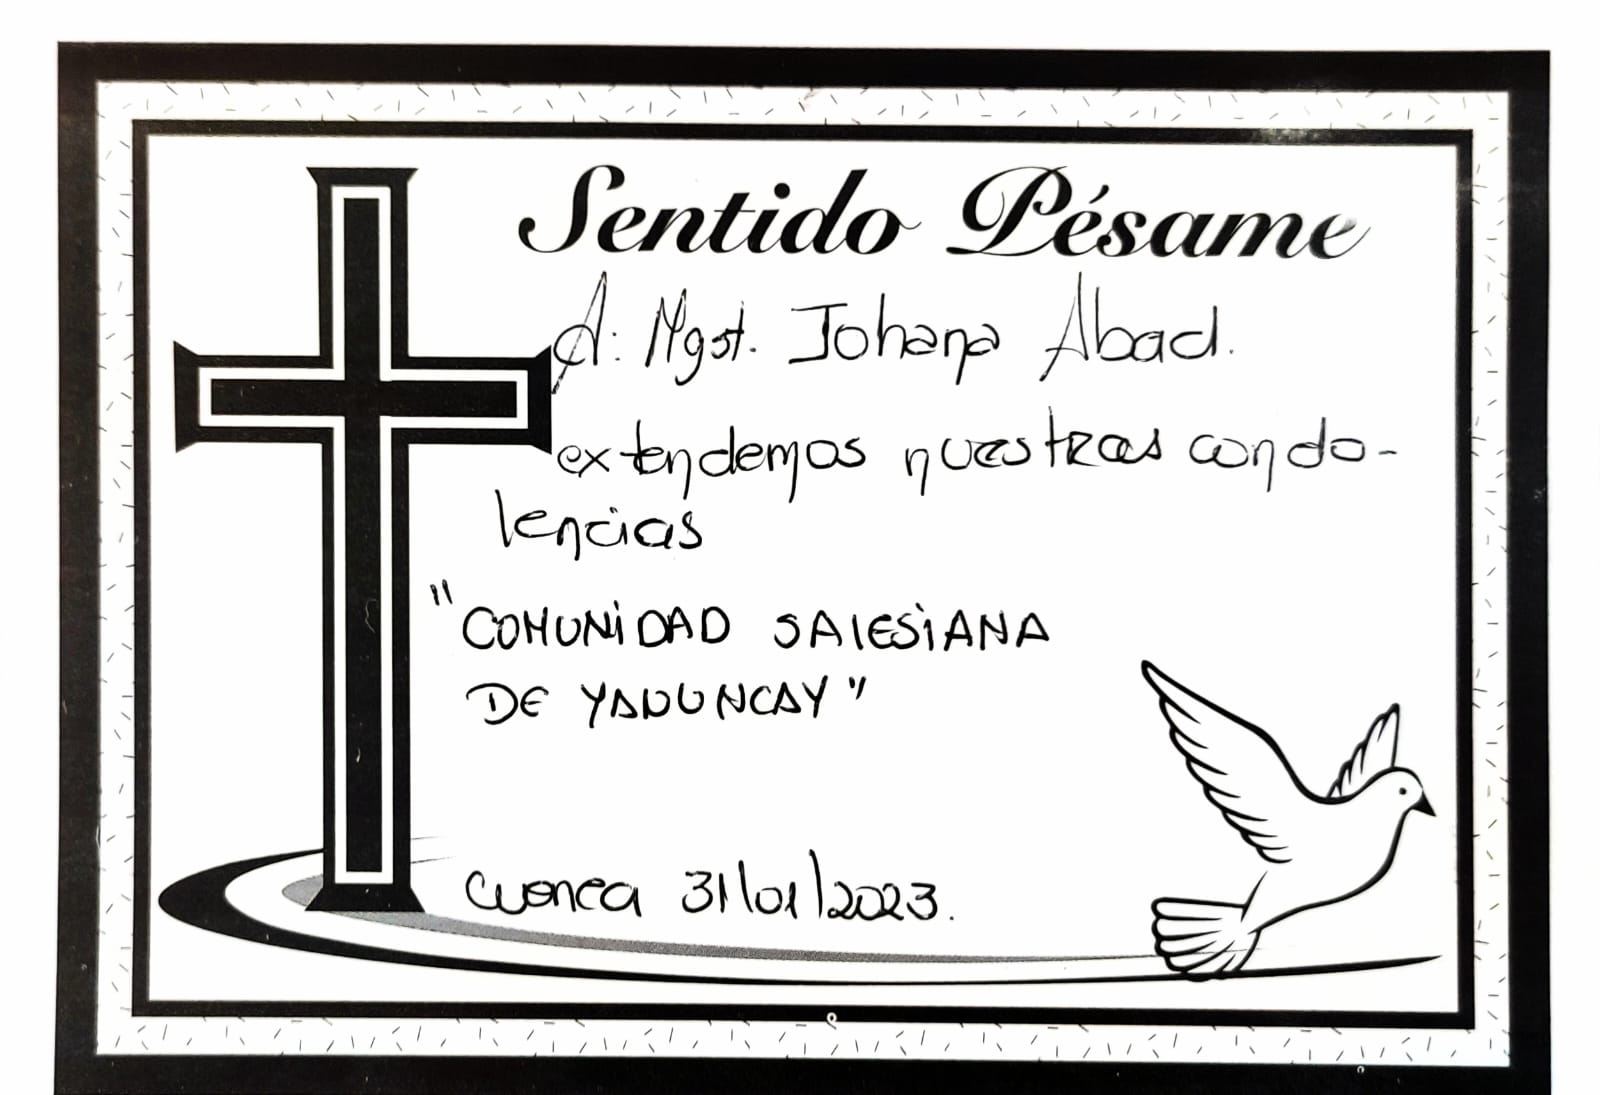 Sentido Pésame
A: Mgst. Johana Abad.
extendemos nuestras condo-
lencias
"COMUNIDAD SALESIANA
DE YANUNCAY"
Cuenca 31/01/2023.